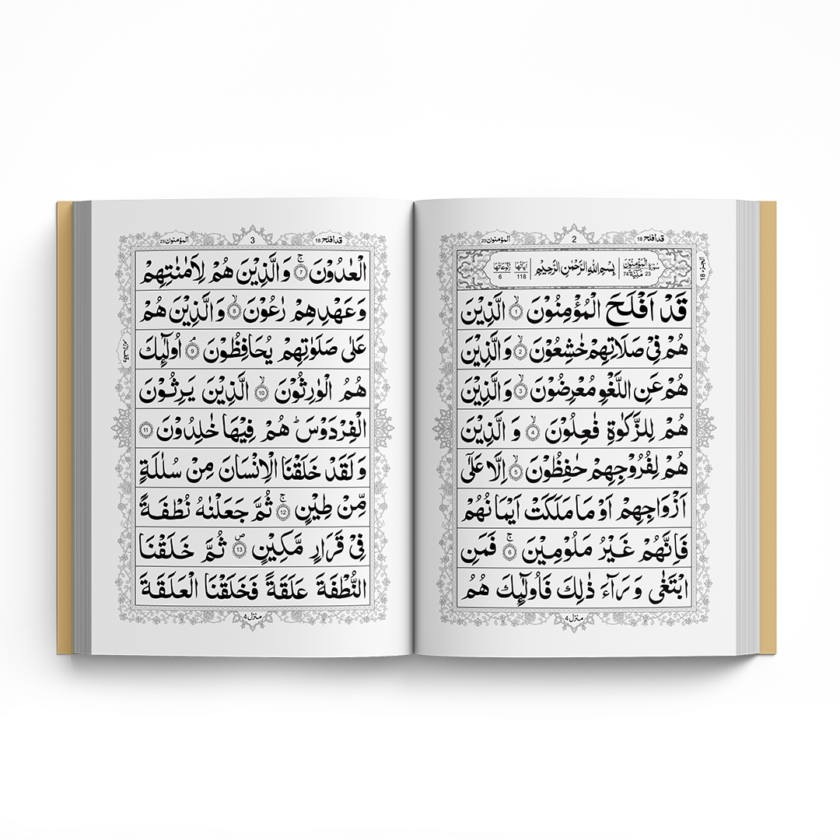 المؤمنون 23
2
قد افلح 18
الجزء 18
سورة المؤمنون
23
مكية 74
بِسْمِ اللهِ الرَّحْمٰنِ الرَّحِيْمِ
اٰیاتها
118
رکوعاتها
6
قَدْ اَفْلَحَ الْمُؤْمِنُوْنَ ۙ 1 الَّذِيْنَ
هُمْ فِيْ صَلَاتِهِمْ خٰشِعُوْنَ ۙ 2 وَالَّذِيْنَ
هُمْ عَنِ اللَّغْوِ مُعْرِضُوْنَ ۙ 3 وَالَّذِيْنَ
هُمْ لِلزَّكٰوةِ فٰعِلُوْنَ ۙ 4 وَ الَّذِيْنَ
هُمْ لِفُرُوْجِهِمْ حٰفِظُوْنَ ۙ 5 اِلَّا عَلٰٓى
اَزْوَاجِهِمْ اَوْ مَا مَلَكَتْ اَيْمَانُهُمْ
فَاِنَّهُمْ غَيْرُ مَلُوْمِيْنَ ۚ 6 فَمَنِ
ابْتَغٰى وَرَآءَ ذٰلِكَ فَاُولٰٓئِكَ هُمُ
منزل 4
المؤمنون 23
3
قد افلح 18
الْعٰدُوْنَ ۚ 7 وَالَّذِيْنَ هُمْ لِاَمٰنٰتِهِمْ
وَعَهْدِهِمْ رٰعُوْنَ ۙ 8 وَالَّذِيْنَ هُمْ
عَلٰى صَلَوٰتِهِمْ يُحَافِظُوْنَ ۘ 9 اُولٰٓئِكَ
هُمُ الْوٰرِثُوْنَ ۙ 10 الَّذِيْنَ يَرِثُوْنَ
الْفِرْدَوْسَ ؕ هُمْ فِيْهَا خٰلِدُوْنَ 11
وَ لَقَدْ خَلَقْنَا الْاِنْسَانَ مِنْ سُلٰلَةٍ
مِّنْ طِيْنٍ ۚ 12 ثُمَّ جَعَلْنٰهُ نُطْفَةً
فِيْ قَرَارٍ مَّكِيْنٍ ۪ 13 ثُمَّ خَلَقْنَا
النُّطْفَةَ عَلَقَةً فَخَلَقْنَا الْعَلَقَةَ
منزل 4